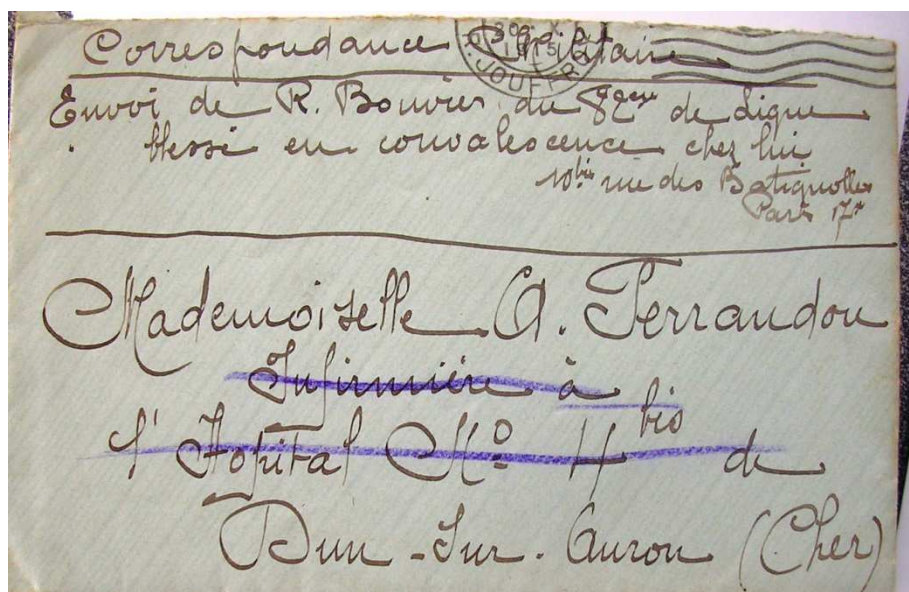 Correspondance Militaire
Envoi de R. Bouvier du 82eme de Ligne
blessé en convalescence chez lui
10bis rue des Batignolles
Paris 17e
Mademoiselle A. Ferrandou
Infirmière à
l'Hopital No 4 bis de
Dun-Sur-Auron (Cher)